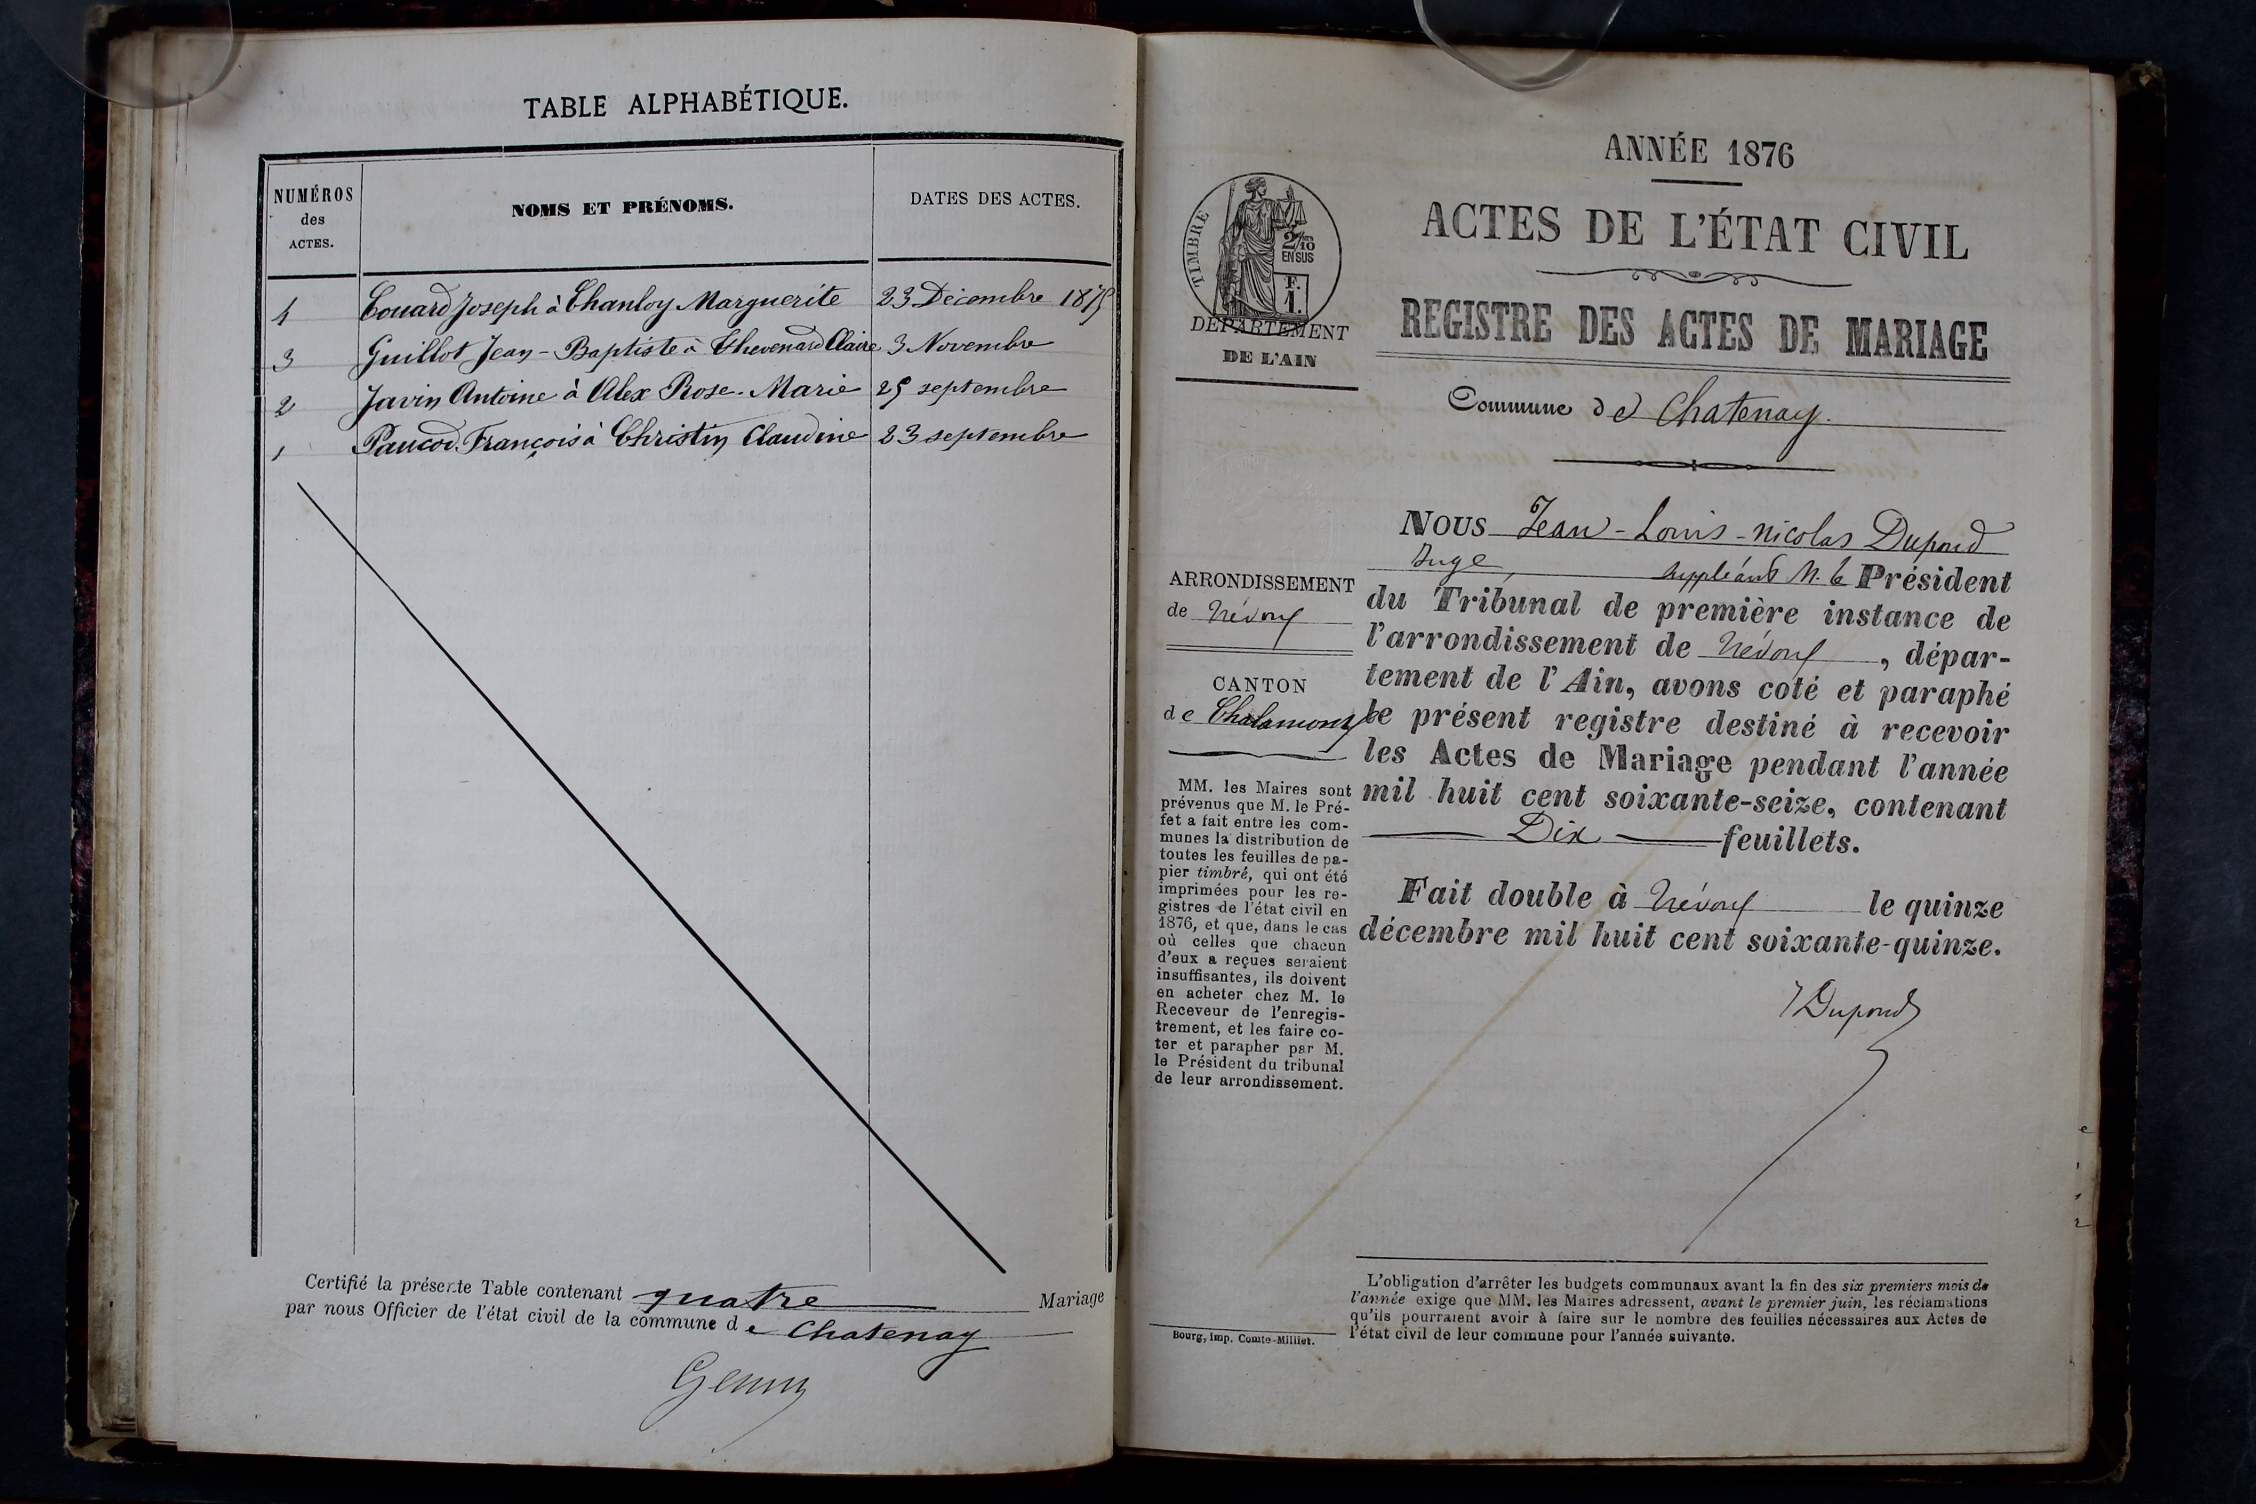 TABLE ALPHABÉTIQUE.
NUMÉROS
des
ACTES.
NOMS ET PRÉNOMS.
DATES DES ACTES.
4 Couard Joseph à Chanloy Marguerite 23 Décembre 1875
3 Guillot Jean-Baptiste à Thevenard Claire 3 Novembre
2 Javin Antoine à Alex Rose-Marie 25 septembre
1 Paucod François à Christin Claudine 23 septembre
Certifié la présente Table contenant quatre Mariage
par nous Officier de l'état civil de la commune de Chatenay
ANNÉE 1876
ACTES DE L'ÉTAT CIVIL
REGISTRE DES ACTES DE MARIAGE
TIMBRE
2/10
EN SUS
F.
1.
DÉPARTEMENT
DE L'AIN
Commune de Chatenay.
ARRONDISSEMENT
de Trévoux
CANTON
de Chalamont
MM. les Maires sont
prévenus que M. le Pré-
fet a fait entre les com-
munes la distribution de
toutes les feuilles de pa-
pier timbré, qui ont été
imprimées pour les re-
gistres de l'état civil en
1876, et que, dans le cas
où celles que chacun
d'eux a reçues seraient
insuffisantes, ils doivent
en acheter chez M. le
Receveur de l'enregis-
trement, et les faire co-
ter et parapher par M.
le Président du tribunal
de leur arrondissement.
Bourg, imp. Comte-Milliet.
NOUS Jean-Louis-Nicolas Dupond
Juge, suppléant M. le Président
du Tribunal de première instance de
l'arrondissement de Trévoux, dépar-
tement de l'Ain, avons coté et paraphé
le présent registre destiné à recevoir
les Actes de Mariage pendant l'année
mil huit cent soixante-seize, contenant
Dix feuillets.
Fait double à Trévoux le quinze
décembre mil huit cent soixante-quinze.
Dupond
L'obligation d'arrêter les budgets communaux avant la fin des six premiers mois de
l'année exige que MM. les Maires adressent, avant le premier juin, les réclamations
qu'ils pourraient avoir à faire sur le nombre des feuilles nécessaires aux Actes de
l'état civil de leur commune pour l'année suivante.